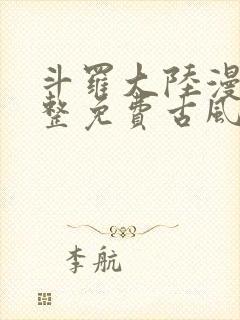 斗羅大陸漫
整免費古風
李航